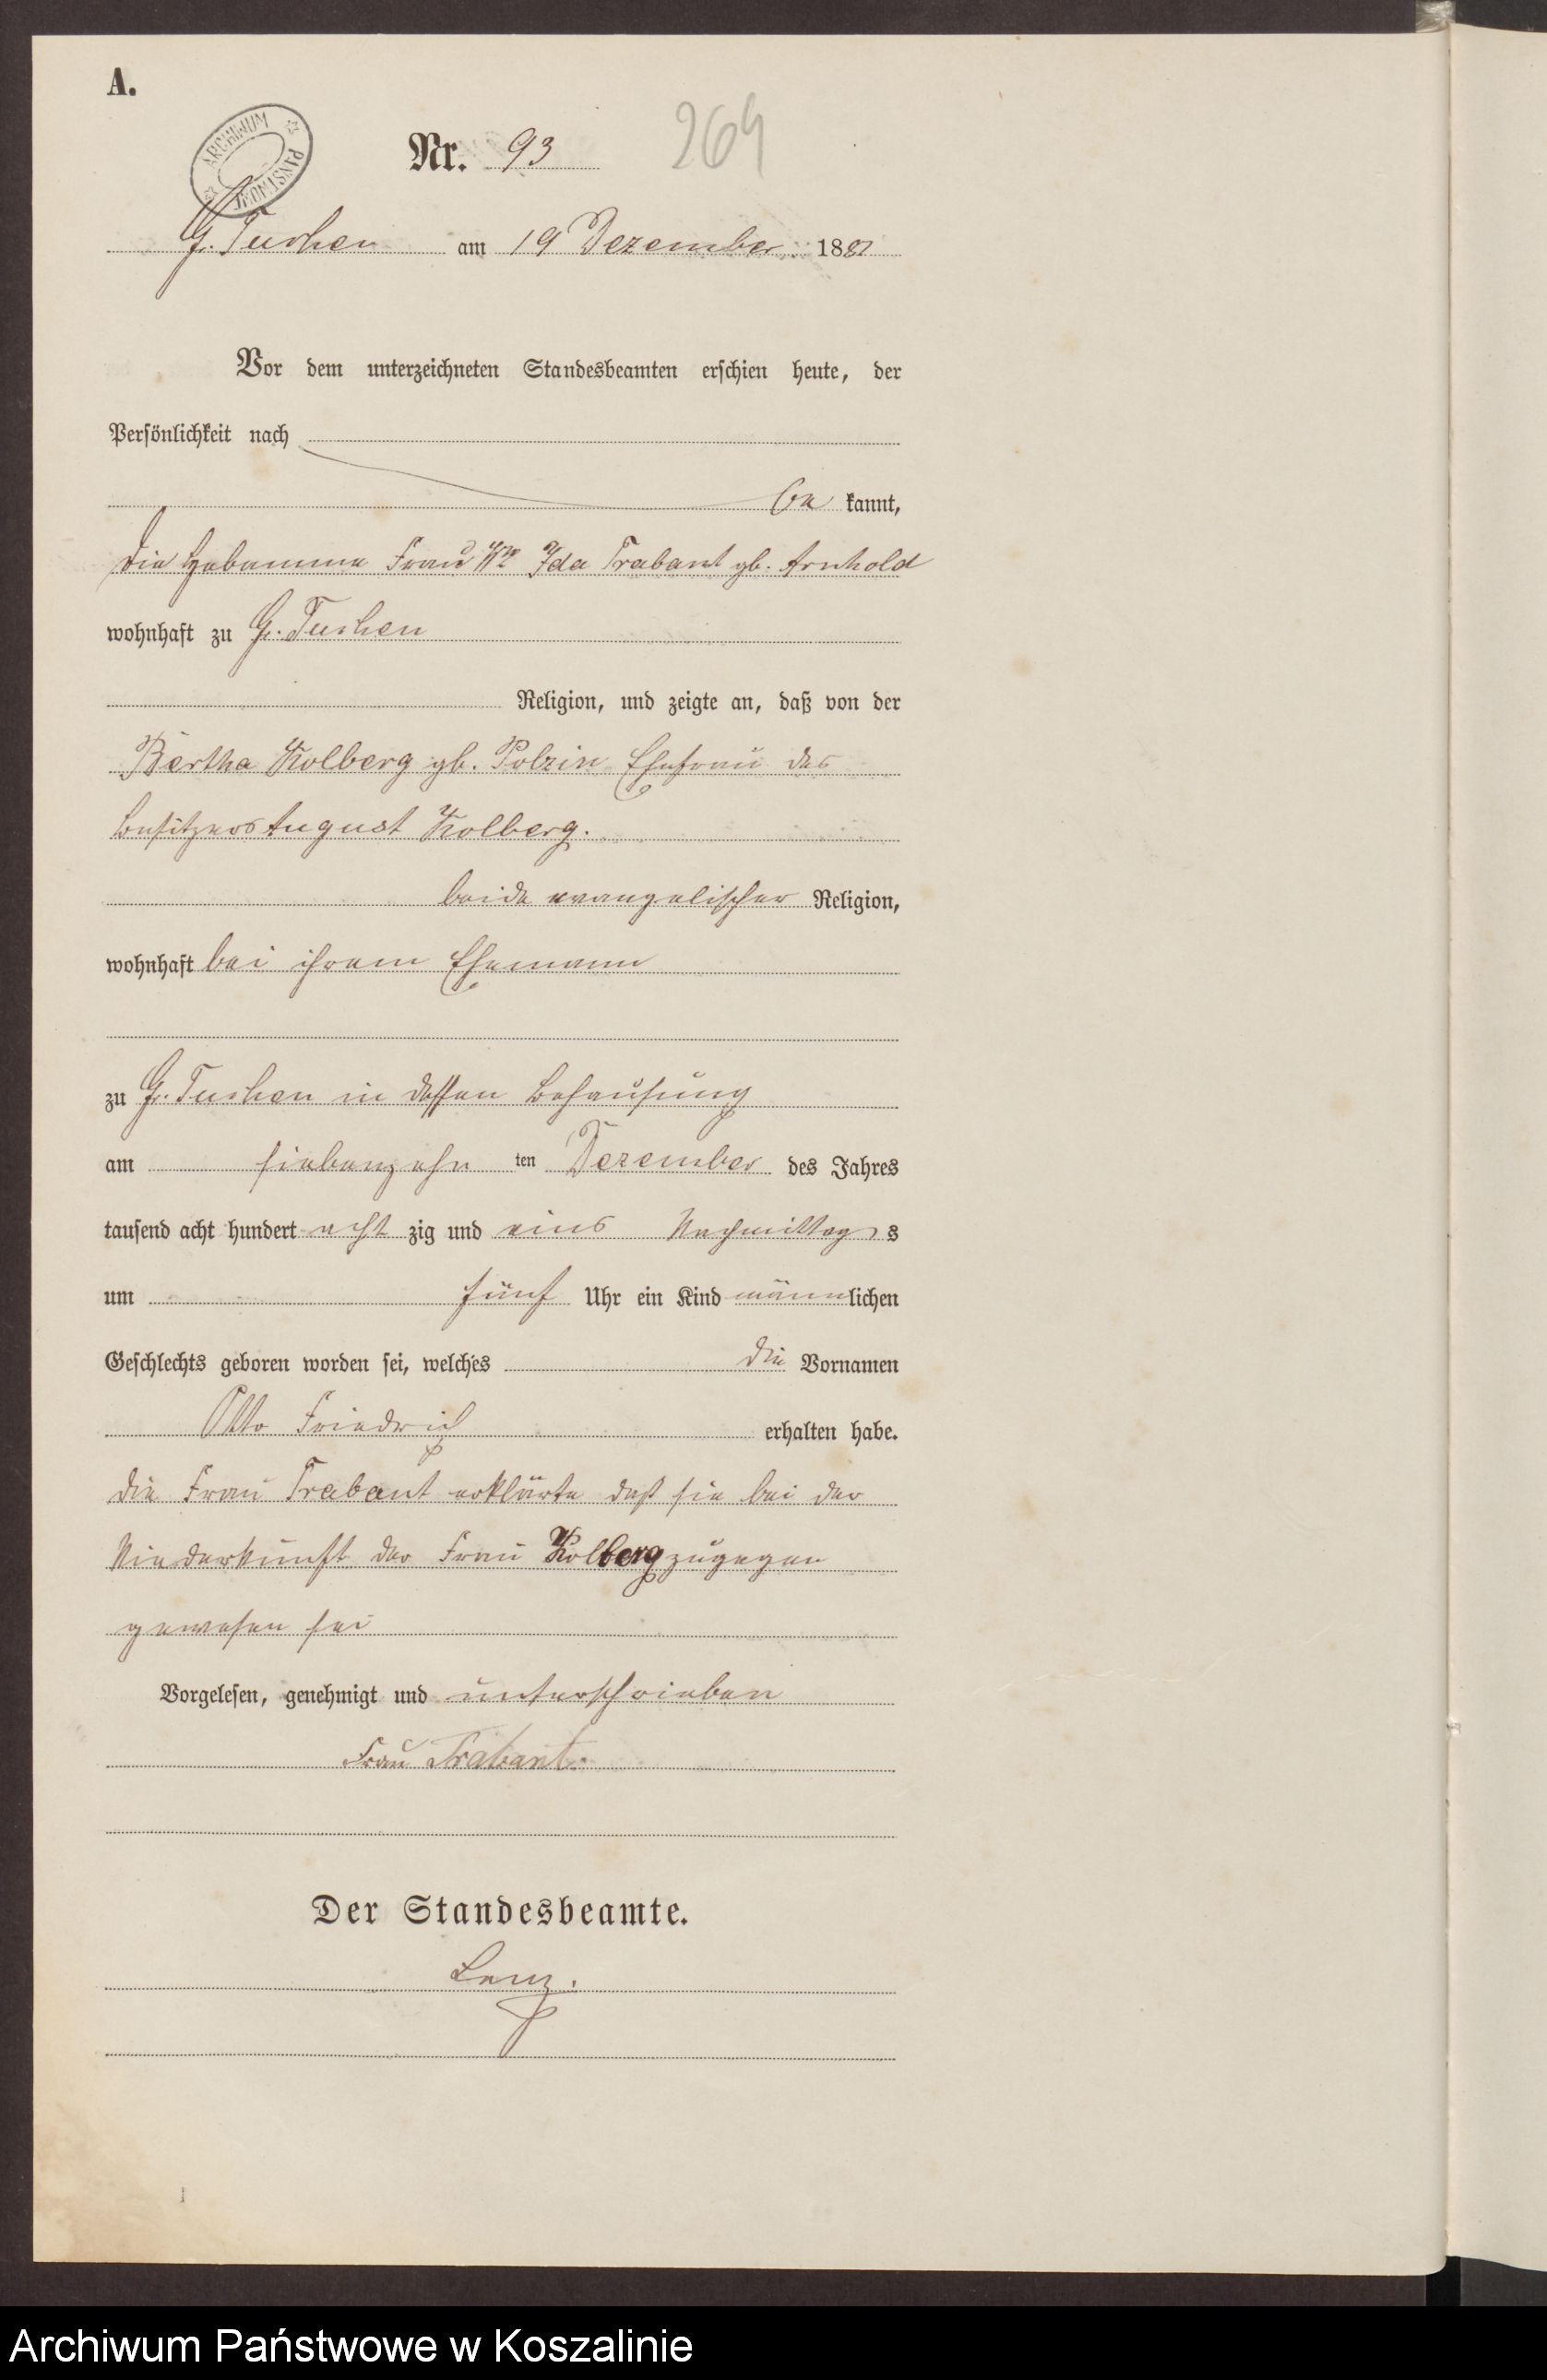 A.
ARCHIWUM PAŃSTWOWE
Nr. 93
264
G. Tuchen am 19 Dezember 1881
Vor dem unterzeichneten Standesbeamten erschien heute, der
Persönlichkeit nach
be kannt,
die Hebamme Frau Ida Trabant gb. Arnhold
wohnhaft zu G. Tuchen
Religion, und zeigte an, daß von der
Bertha Kolberg gb. Polzin Ehefrau des
Besitzers August Kolberg.
beide evangelischer Religion,
wohnhaft bei ihrem Ehemann
zu G. Tuchen in dessen Behausung
am siebenzehn ten Dezember des Jahres
tausend acht hundert acht zig und eins Nachmittag s
um fünf Uhr ein Kind männlichen
Geschlechts geboren worden sei, welches die Vornamen
Otto Friedrich erhalten habe.
Die Frau Trabant erklärte daß sie bei der
Niederkunft der Frau Kolberg zugegen
gewesen sei
Vorgelesen, genehmigt und unterschrieben
Frau Trabant.
Der Standesbeamte.
Lenz.
Archiwum Państwowe w Koszalinie